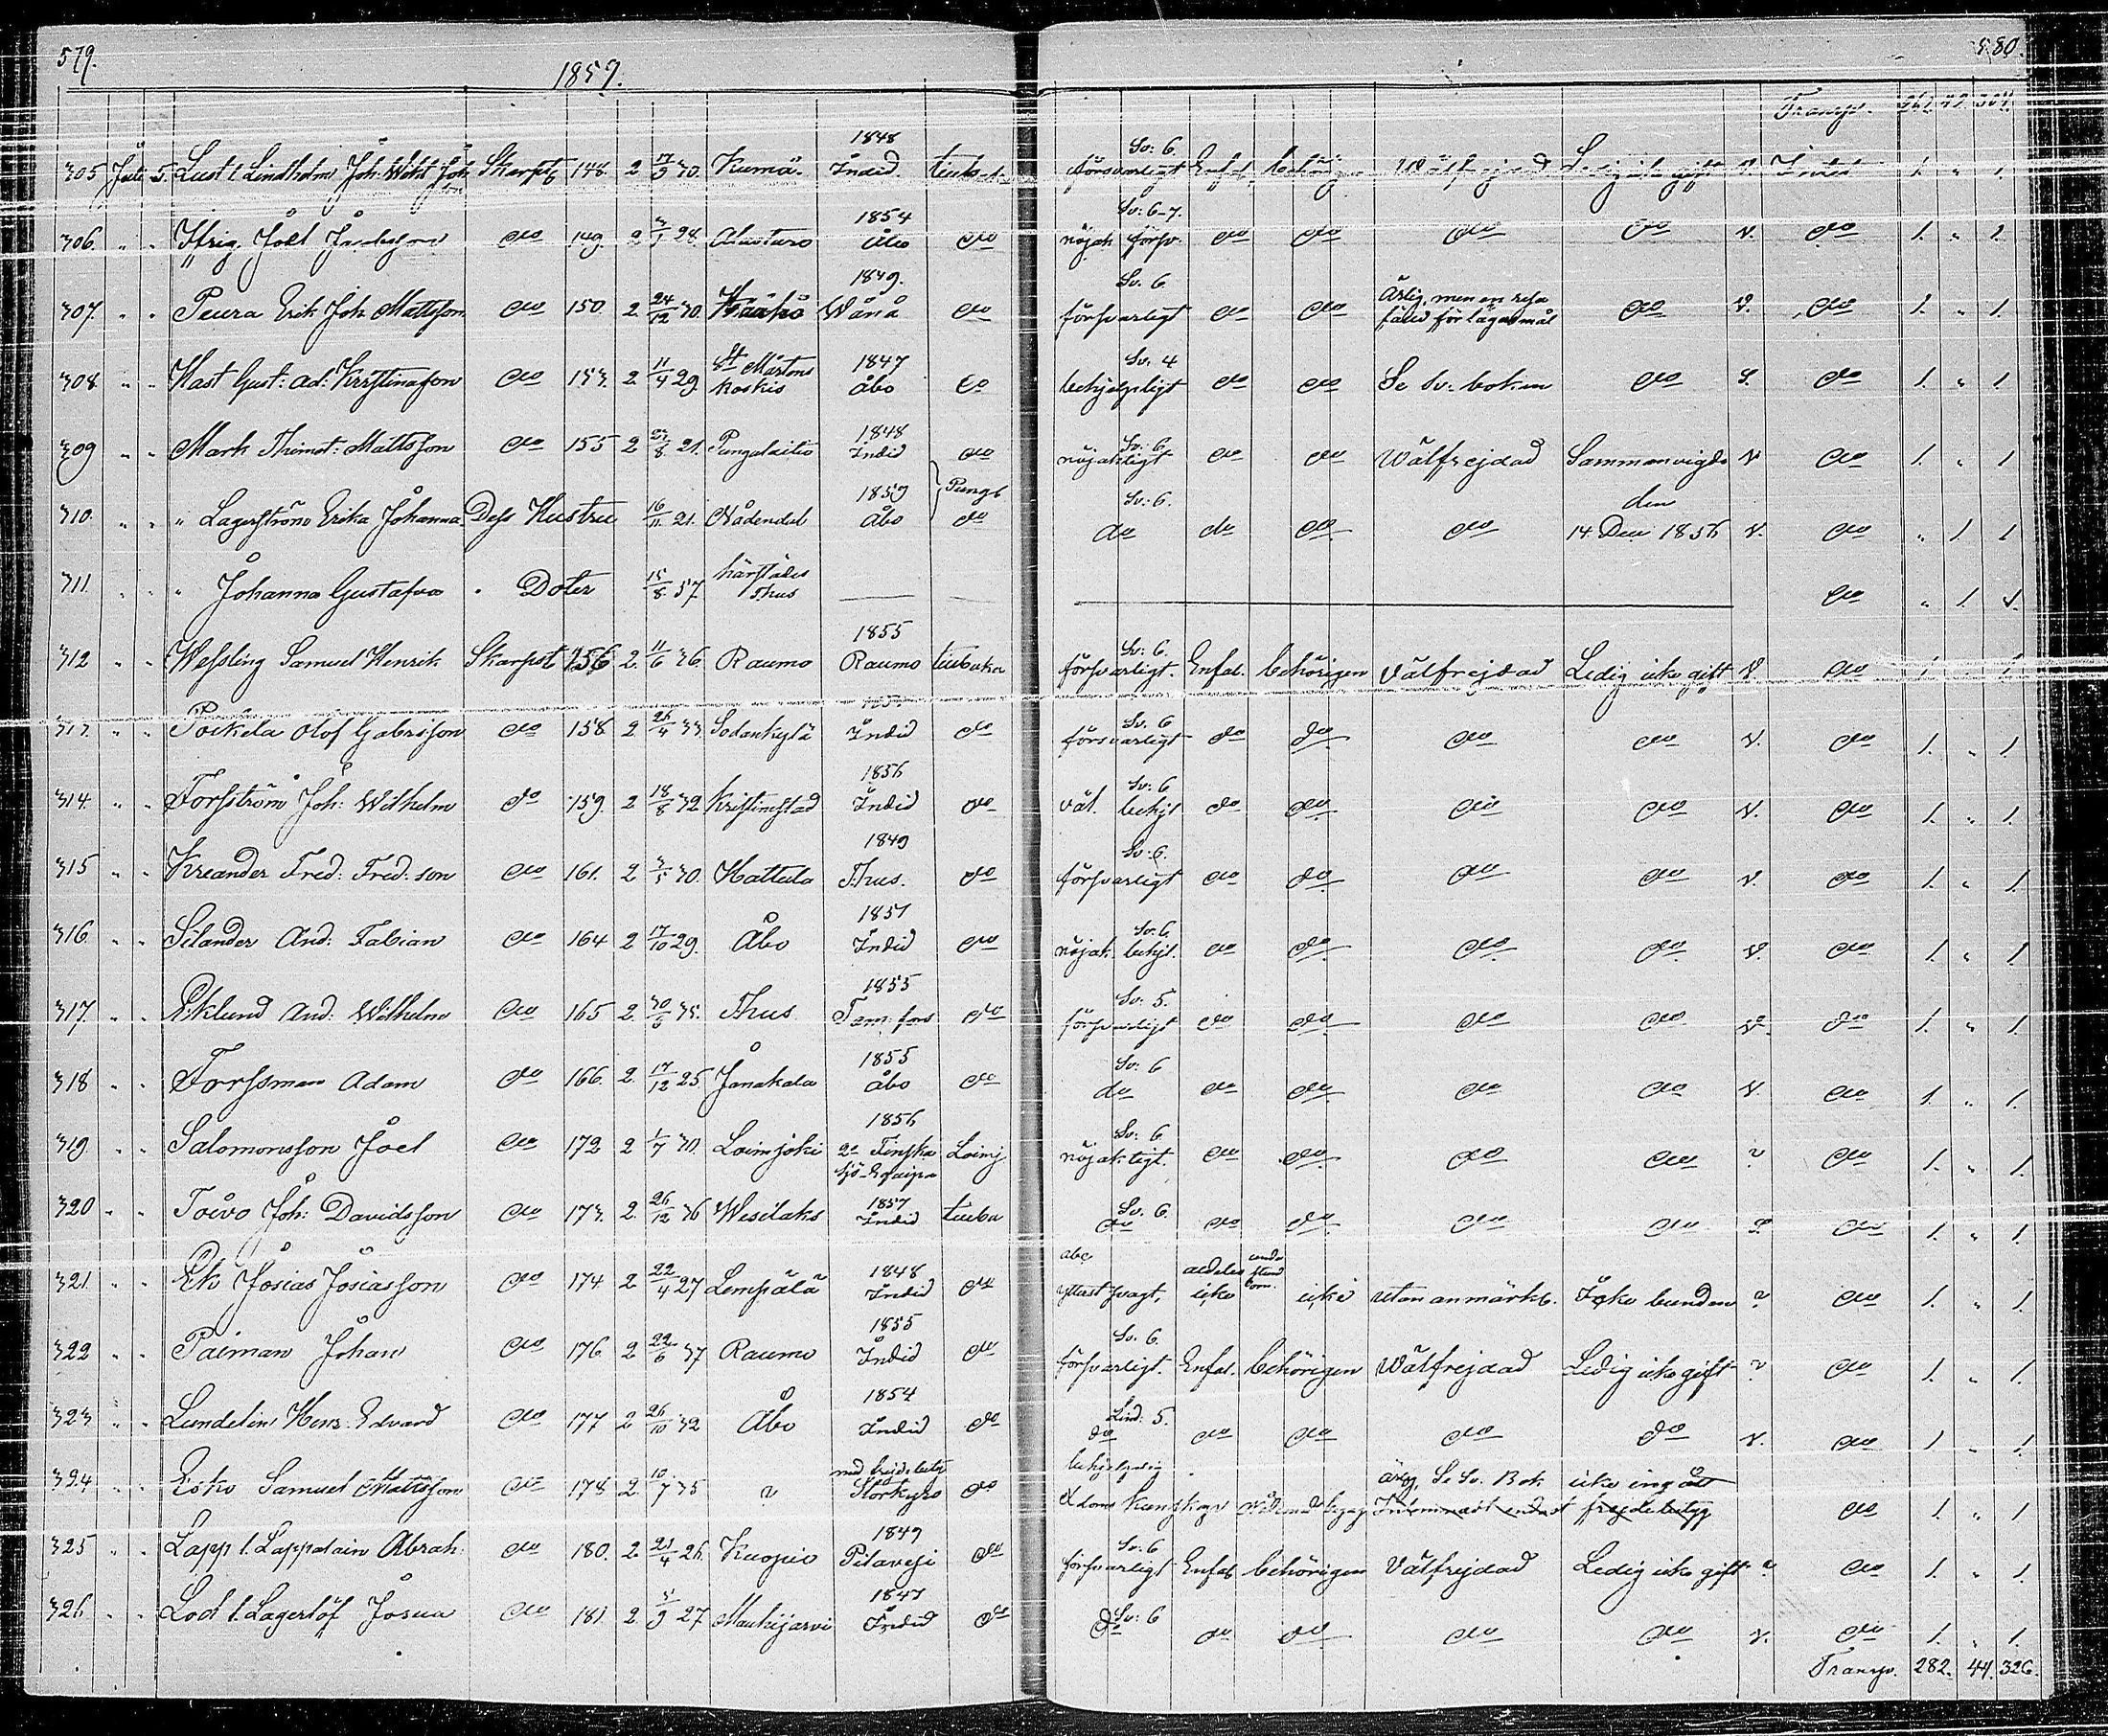 579. 1857. 580.
Transp. 262. 42. 304.
305 Juli 5. Lust l. Lindholm Joh: Wilh: Joh: son Skarpsk 148. 2 17/9 30. Kumå. 1848 Indid. Sv: 6. försvarligt Enfal. behörigen Wälfrejdad Ledig icke gift V. 1. " 1.
306. " " Joel do 149. 2 28 Alastaro 1854 Åbo do Sv: 6-7. nöjak försv. do do do do V. do 1. " 1.
307. " " Peura Erik Joh Mattsson do 150. 2 24/12 30. 1849. Wånå do Sv. 6 försvarligt do do Ärlig, men en resa fäld för lägersmål do V. do 1. " 1.
308. " " Hast Gust: Ad: Kristinason do 153. 2 11/4 29. St Mårtens Koskis 1847 Åbo do Sv. 4 behjelpligt do do Se Sv: boken do S. do 1. " 1
309 " " Mark Thimot: Mattsson do 155 2 /8 21. Pungalaitio 1848 Indid do Sv: 6. nöjaktigt do do Wälfrejdad Sammanvigde V do 1. " 1
310. " " " Lagerström Erika Johanna Dess Hustru 16/11 21. Nådendal 1859 Åbo Pungl do Sv: 6. do do do do den 14 Dec 1856 V. do " 1 1
311. " " " Johanna Gustafva " Doter 15/8 57. härstädes Thus do " 1. 1.
312 " " Wessling Samuel Henrik Skarpsk 156 2. 11/6 36. Raumo 1855 Raumo Sv: 6. försvarligt. Enfal. behörigen Välfrejdad Ledig icke gift V. do 1. " 1.
313. " " Poikela Olof Gabrisson do 158 2 26/4 33 Sodankylä Indid do Sv. 6 försvarligt do do do do V. do 1. " 1
314. " " Forsström Joh: Wilhelm do 159. 2 18/8 32 Kristinestad 1856 Indid do Sv: 6 väl. behjl do do do do V. do 1. " 1.
315 " " Kreander Fred: Fred: son do 161. 2 3/5 30. Hattula 1849 Thus. do Sv: 6. försvarligt do do do do V. do 1. " 1.
316. " " Silander And: Fabian do 164 2 17/10 29. Åbo 1851 Indid do Sv: 6. nöjak behjl. do do do do V. do 1. " 1.
317. " " Eklund And: Wilhelm do 165 2. 30/6 35. Thus 1855 Tam: fors do Sv: 5. försvarligt do do do do V. do 1. " 1.
318 " " Forssman Adam do 166. 2 17/12 25 Janakala 1855 Åbo do Sv: 6 do do do do do V. do 1. " 1.
319. " " Salomonsson Joel do 172 2 1/7 30. Loimjoki 1856 2a Finska Sjö-Equipa Loimj Sv: 6 nöjaktigt. do do do do V do 1. " 1.
320 " " Toivo Joh: Davidsson do 173. 2. 26/12 36 Wesilaks 1857 Indid Sv. 6. do do do do do do 1. " 1.
321. " " Ek Josias Josiasson do 174 2 22/4 27 Lempälä 1848 Indid do abc ytterst svagt, aldeles icke icke utan anmärk. Icke bunden V do 1. " 1.
322 " " Paiman Johan do 176 2 22/6 37 Raumo 1855 Indid do Sv. 6. försvarligt. Enfal. behörigen Wälfrejdad Ledig icke gift V do 1. " 1.
323 " " Lundelin Henr. Edvard do 177 2 26/10 32 Åbo 1854 Indid do Lind: 5. do do do do do V. do 1 " 1.
324 " " Esko Samuel Mattsson do 178 2. 10/7 35 ? med frejdebetyg Storkyro do ärlig, Se Sv. Bok icke ingått frejdebetyg do 1. " 1
325 " " Lapp l. Lappalain Abrah: do 180. 2. 21/4 26. Kuopio 1849 Pilavesi do Sv: 6 försvarligt Enfal behörigen Välfrejdad Ledig icke gift V do 1. " 1.
326. " " Lod l. Lagerlöf Josua do 181. 2 5/9 27 Maukijarvi 1847 Indid do Sv: 6 do do do do do V. do 1. " 1.
Transp. 282. 44. 326.